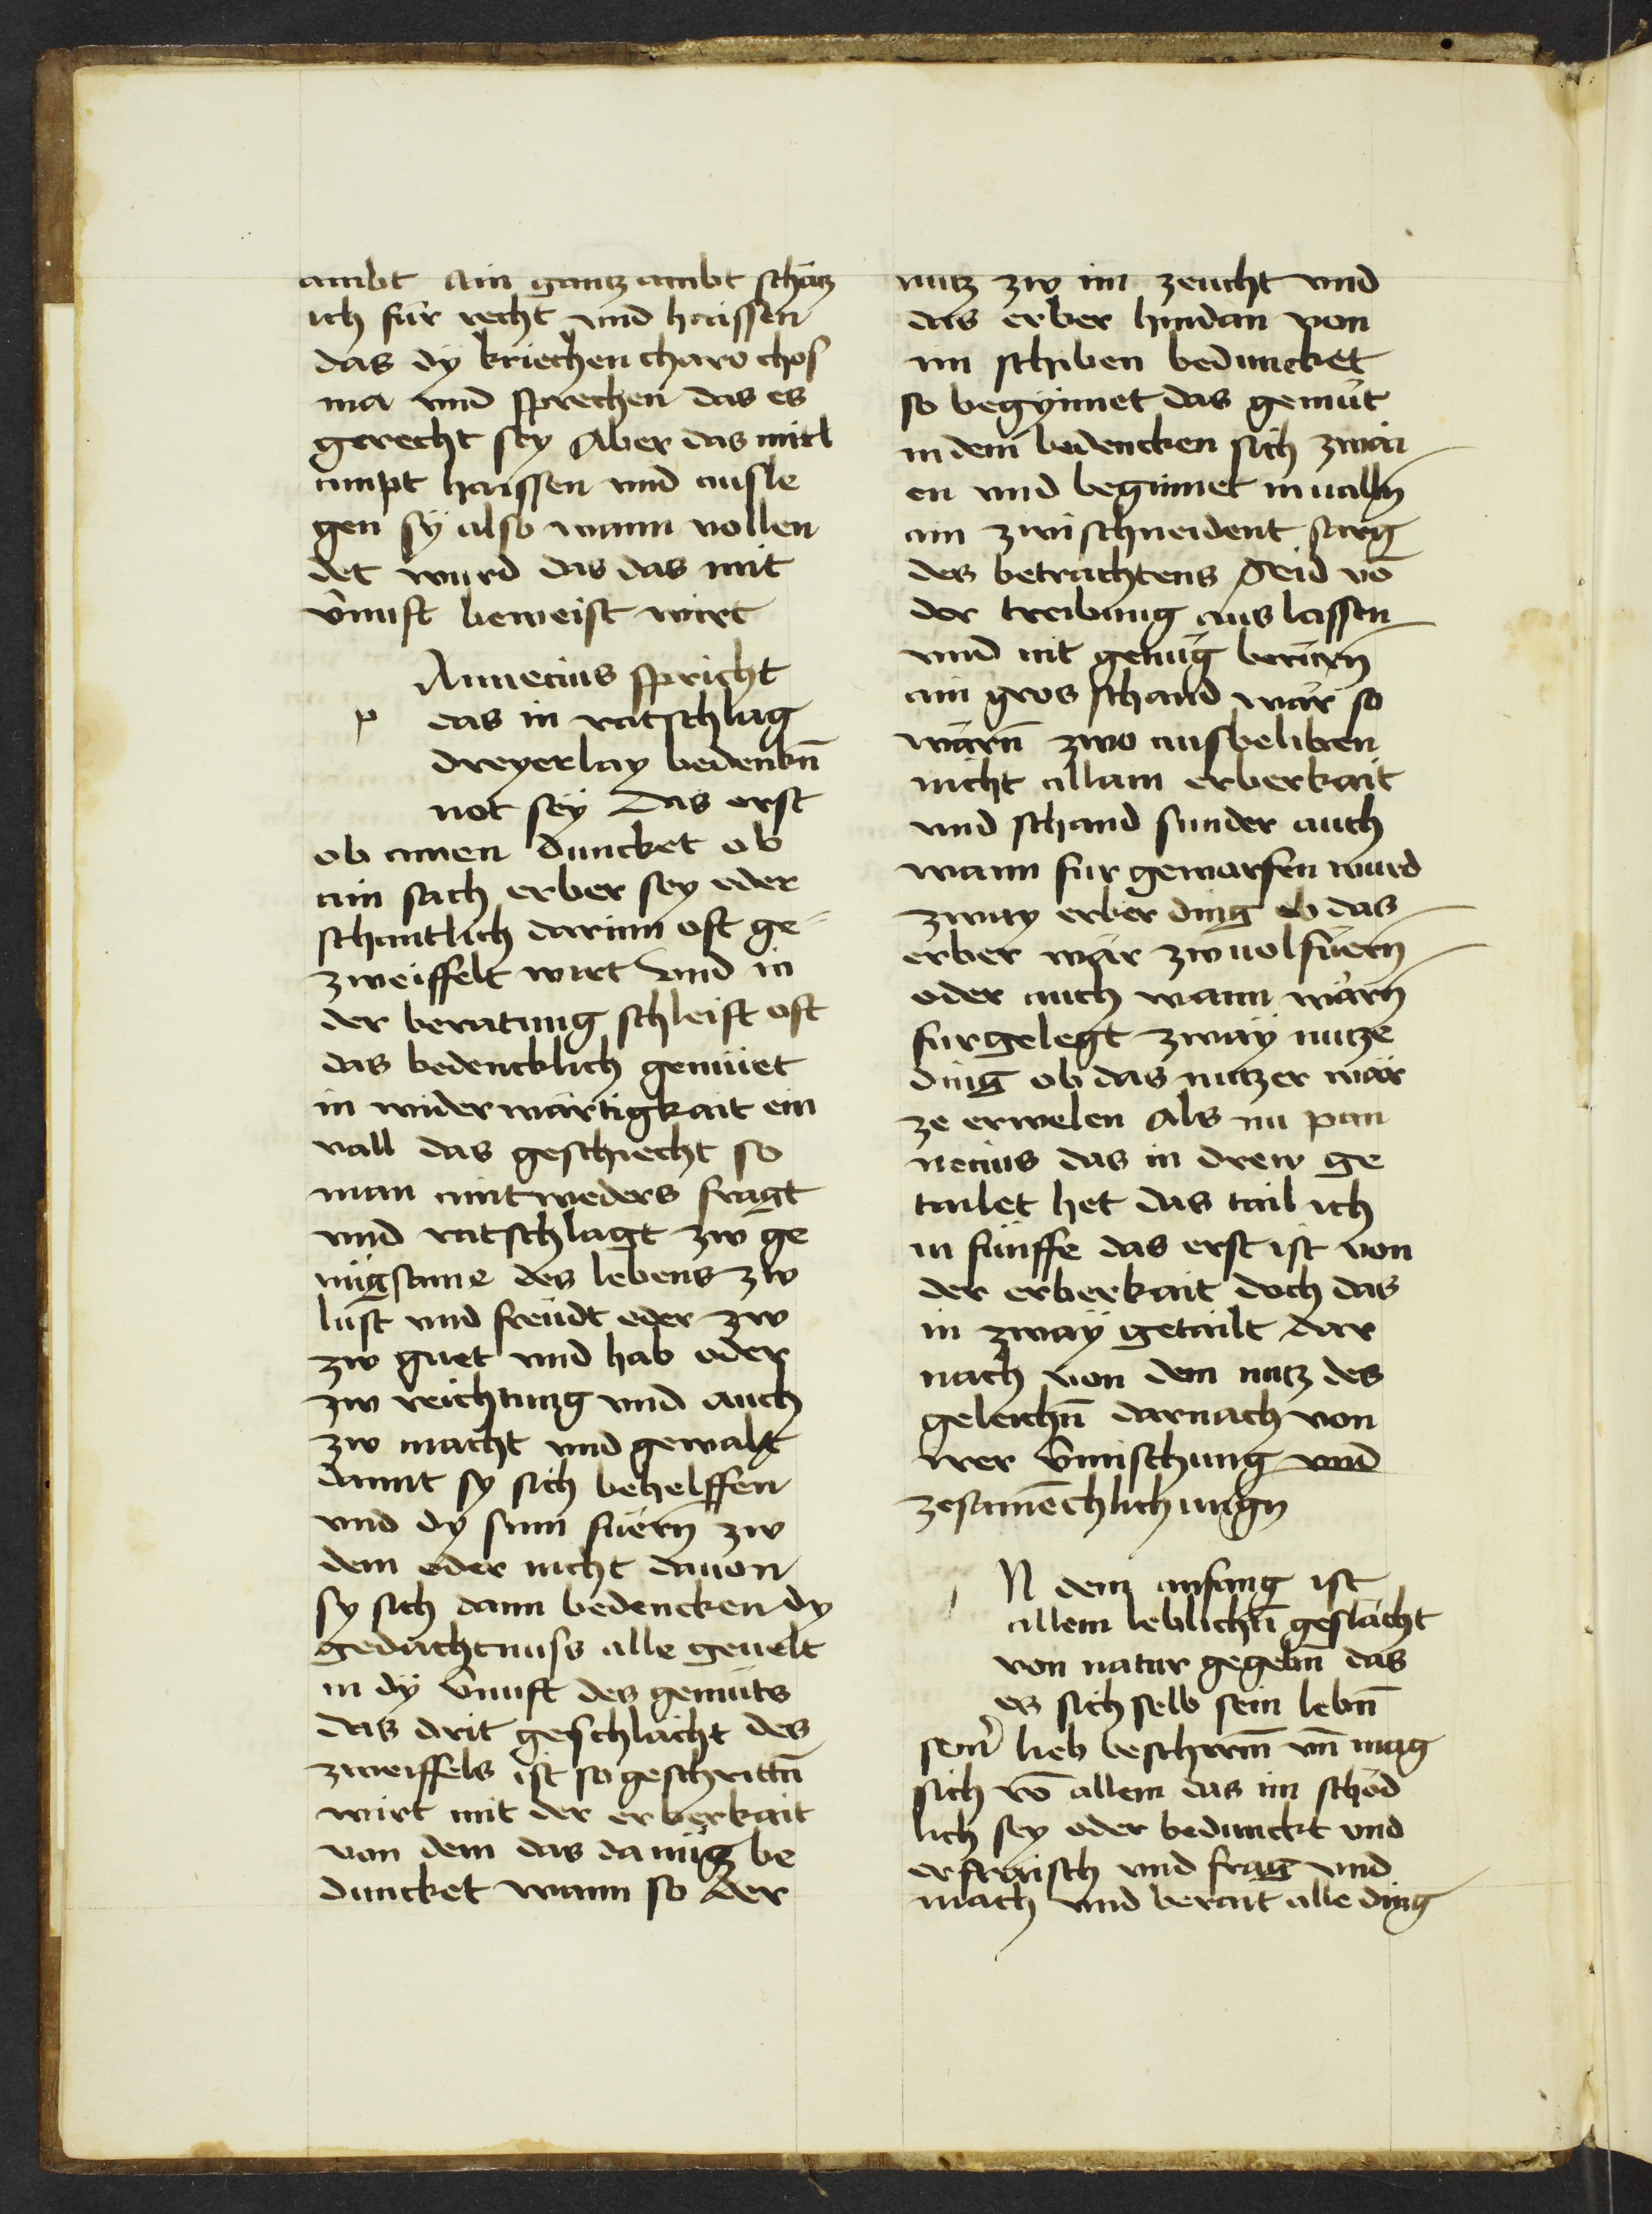 ambt Ain gantz ambt schätz
ich für recht vnd haissen
das dÿ kriechen charo chos
ma vnd sprechen das es
gerecht sey Aber das mitl
ampt haissen vnd ausle
gen sÿ also wann vollen
det wurd das das mit
v̄nuft beweist wirt
Annecius spricht
p das in ratschlag
dreyerlay bedenkn̄
not seÿ das erst
ob ainen duncket ob
ain sach erber sey oder
schantlich darinn oft ge
zweiffelt wirt vnd in
der beratung schleift oft
das bedencklich gemüet
in widerwärtigkait ein
vall das geschiecht so
man aintweders fragt
vnd ratschlagt zw ge
nügsame des lebens zw
lust vnd freüdt oder zw
zw guet vnd hab oder
zw reichtung vnd auch
zw macht vnd gewalt
damit sy sich behelffen
vnd dy sinn füern zw
dem oder nicht dauon
sy sich dann bedencken dy
gedächtnuss alle geuelt
in dÿ v̄nuft des gemüts
das drit geschlächt des
zweiffels ist so geschrittn̄
wirt mit der erberkait
von dem das da nütz be
duncket wann so der
nutz zw im zeucht vnd
das erber hindan von
im schiben beduncket
so begÿnnet das gemüt
in dem bedencken sich zwai
en vnd beginnet in ualln
ain zwischneident sarg
des betrachtens Seid vō
der treibung aus lassen
vnd nit genüg berürn
ain gros schand wär so
wärn̄ zwo ausbeliben
nicht allain erberkait
vnd schand sunder auch
wann fur geworfen wurd
zway erber ding ob das
erber wär zw uolfüern
oder auch wann wärn
furgelegt zwaÿ nutze
ding ob das nutzer wär
ze erwelen Als nu pan
necius das in drew ge
tailet het das tail ich
in fünffe das erst ist von
der erberkait doch das
in zwaÿ getailt dar
nach von dem nutz des
geleichn̄ darnach von
irer v̄mischung vnd
zesamēchlichungn
N dem anfang ist
allem leblichn̄ geslächt
von natur gegebn̄ das
es sich selb sein lebn̄
sein̄ lieb beschirm̄ vn̄ mag
sich vō allem das im schäd
lich sey oder bedunckt vnd
erfraisch vnd frag vnd
mach vnd berait alle ding